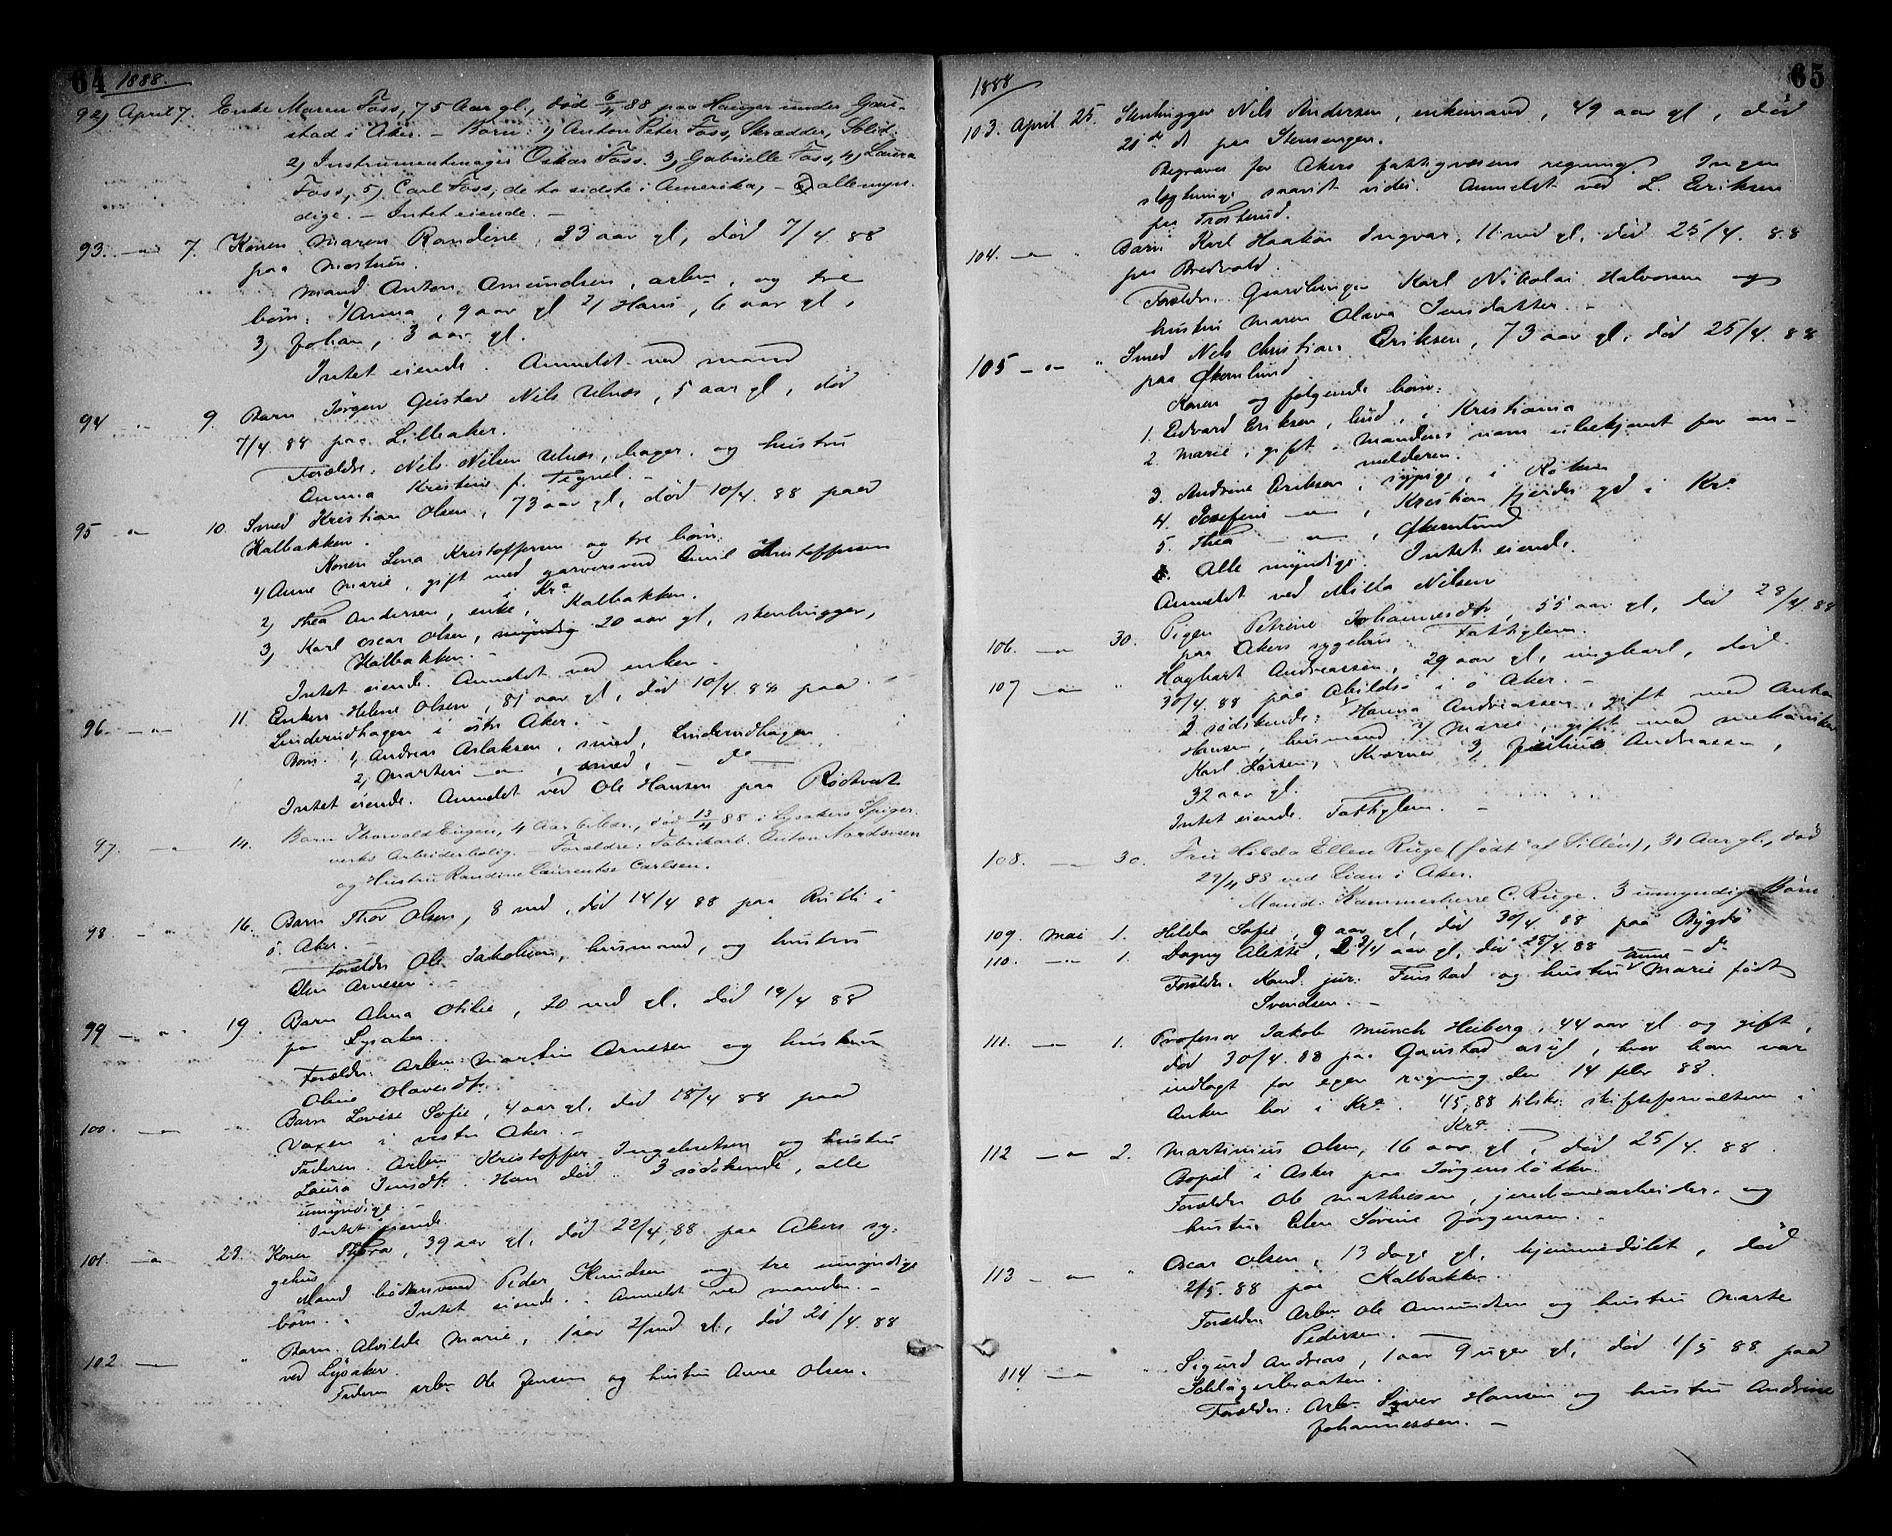 64 1888.
92) April 7. Enke Maren Foss, 75 Aar gl., død 6/4 88 paa Hauger under Gau-
stad i Aker. – Børn: 1) Anton Peter Foss, Skrædder,
2) Instrumentmager Oskar Foss. 3) Gabrielle Foss, 4) Laura
Foss, 5) Carl Foss, de to sidste i Amerika, – alle myn-
dige. – Intet eiende. –
93. – " – 7. Konen Maren Randine, 33 aar gl, død 7/4 88
paa
Mand Anton Amundsen, arbm, og tre
børn. 1/ Anna, 9 aar gl 2/ Hans, 6 aar gl,
3) Johan, 3 aar gl.
Intet eiende. Anmeldt ved mand
94 – " – 9. Barn Jørgen Gustav Nils Ulnæs, 5 aar gl, død
7/4 88 paa Lilleaker.
Forældre: Nils Nilsen Ulnæs, bager, og hustru
Anna Kristine f. Tegnel. –
95 – " – 10. Smed Kristian Olsen, 73 aar gl, død 10/4. 88 paa
Kalbakken.
Konen Lena Kristoffersen og tre børn:
1) Anne Marie, gift med garversvend Emil Kristoffersen
i Kra
2) Thea Andersen, enke, Kalbakken.
3) Karl Oscar Olsen, myndig 20 aar gl, stenhugger,
Kalbakken. –
Intet eiende. Anmeldt ved enken.
96. – " – 11. Enken Helene Olsen, 81 aar gl, død 10/4 88 paa
Linderudhagen i østre Aker. –
Børn: 1) Andreas Aslaksen, smed, Linderudhagen
2) Martin – " –, smed, – do –
Intet eiende. Anmeldt ved Ole Hansen paa Rødtvet
97. – " – 14. Barn Thorvald Eugen, 4 Aar, død 13/4 88 i Lysakers Spiger-
verks Arbeiderbolig. – Forældre: Fabrikarb. Anton Nordsveen
og Hustru Randine Laurentse Carlsen.
98. – " – 16. Barn Thor Olsen, 8 md, død 14/4 88 paa i
ø. Aker. –
Forældre Ole Jakobsen, husmand, og hustru
Elen Arnesen. –
99 – " – 19. Barn Alma Otilie, 20 md gl. død 19/4 88
paa Lysaker.
Forældre: Arbm Martin Arnesen og hustru
Oline Olavesdtr.
100. – " – Barn Lovise Sofie, 4 aar gl. død 18/4 88 paa
Voxen i vestre Aker. –
Faderen: Arbm Kristoffer Ingebretsen og hustru
Laura Jensdtr. Hun død. 3 sødskende, alle
umyndige. –
Intet eiende.
101. – " – 23. Konen Thora, 39 aar gl, død 22/4, 88 paa Akers sy-
gehus
Mand bødkersvend Peder Knudsen og tre umyndige
børn. Intet eiende. – Anmeldt ved manden. –
102 – " Barn Alvilde Marie, 1 aar 2 md gl, død 21/4. 88
ved Lysaker.
Faderen arbm Ole Jensen og hustru Anne Olsen.
65
1888
103. April 25. Stenhugger Nils Andersen, enkemand, 49 aar gl, død
21 ds. paa Stensengen.
Begraves for Akers fattigvæsens regning. Ingen
slægtninge saavidt vides. Anmeldt ved L. Eriksen
paa Trosterud.
104. – " – Barn Karl Haakon Ingvar, 11 md gl, død 25/4. 88
paa Bredvold.
Forældre. Gaardbruger Karl Nikolai Halvorsen og
hustru Maren Olava Jensdatter. –
105 – " – " Smed Nils Christian Eriksen, 73 aar gl, død 25/4. 88
paa Økernlund
Konen og følgende børn:
1. Edvard Eriksen, bud, i Kristiania
2. Marie, gift – mandens navn ubekjent for an-
melderen.
3. Andrine Eriksen, sypige, i Røken
4. Josefine – " –, Kristian fjerdes gd i Kra
5. Thea – " –, Økernlund
Alle myndige. Intet eiende.
Anmeldt ved Milla Nilsen
106. – " – 30. Pigen Petrine Johannesdtr, 55 aar gl, død 28/4 88
paa Akers sygehus. Fattiglem.
107 – " – " Hagbart Andreassen, 29 aar gl, ungkarl, død
30/4. 88 paa Abildsø i ø Aker. –
3 sødskende: 1/ Hanna Andreassen, gift med Anton
Hansen, husmand 2/ Marie, gift med mekaniker
Karl Larsen, 3) Andreassen,
32 aar gl.
Intet eiende. Fattiglem. –
108. – " – 30. Frue Hilda Ellen Ruge (født af Sillén), 31 Aar gl., død
29/4 88 ved Lian i Aker.
Mand: Kammerherre C. Ruge. 3 umyndige Børn.
109. Mai 1. Hilda Sofie, 9 aar gl, død 30/4 88 paa Bygdø
110. – " – 1. Dagny Alette, 2 3/4 aar gl, død 28/4 88 – do
Forældre. Kand. jur. Finstad og hustru Anne Marie født
Svendsen. –
111. – " – 1. Professor Jakob Munch Heiberg, 44 aar gl og gift,
død 30/4. 88 paa Gaustad asyl, hvor han var
indlagt for egen regning den 14 febr 88.
Enken bor i Kra. 4/5. 88 tilskr. skifteforvalteren i
Kra.
112 – " – 2. Martinius Olsen, 16 aar gl, død 25/4. 88.
Bopæl i Asker paa Jørgensløkken.
Forældre Ole Mathisen, jernbanearbeider, og
hustru Elen Sørine Jørgensen. –
113 – " – " Oscar Olsen, 13 dage gl, hjemmedøbt, død
2/5. 88 paa Kalbakken.
Forældre Arbm Ole Amundsen og hustru Marte
Pedersen. –
114 – " – " Sigurd Andreas, 1 aar 9 uger gl, død 1/5 88 paa
Schlägerbraaten.
Forældre: Arbm Syver Hansen og hustru Andrine
Johannessen. –